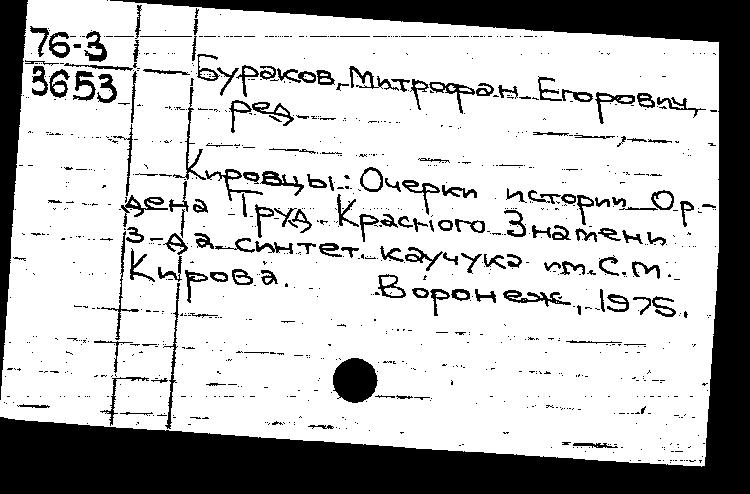 76-3
3653
Бураков, Митрофан Егорович,
ред.
Кировцы: Очерки истории Ор-
дена Труд. Красного Знамени
з-да синтет. каучука им. С.М.
Кирова. Воронеж, 1975.